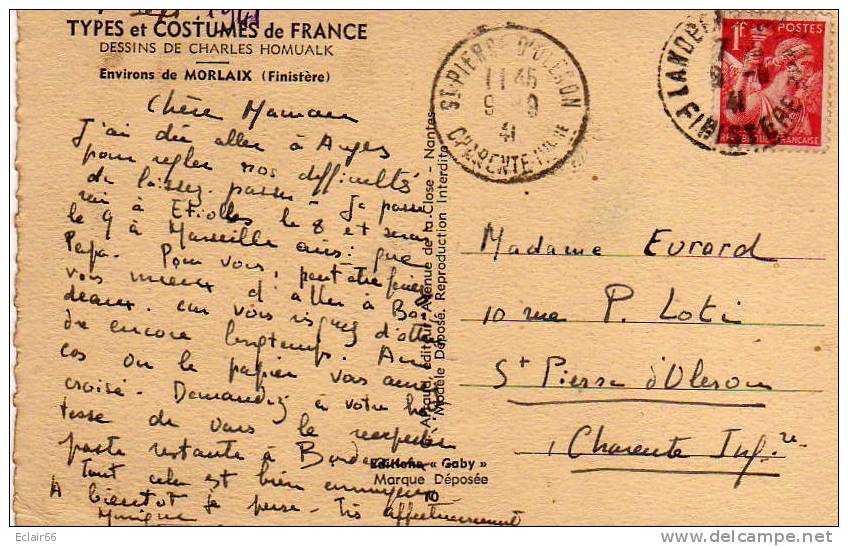 Sept 1941
TYPES et COSTUMES de FRANCE
DESSINS DE CHARLES HOMUALK
Environs de MORLAIX (Finistère)
Chère Maman
J'ai dû aller à Angers
pour regler nos difficultés
de laissez-passer. Je passe
à Etiolles le 8 et serai
le 9 à Marseille ainsi que
Papa. Pour vous, peut être feriez
vous mieux d'aller à Bor-
deaux. car vous risquez d'atten
dre encore longtemps. Au
cas ou le papier vous aurait
croisé. Demandez à votre hô
tesse de vous le reexpédier
poste restante à Bordeaux
Tout cela est bien ennuyeux
A bientôt je pense. Très affectueusement
Monique
Artaud, éditeur, Avenue de la Close - Nantes
Modèle Déposé. Reproduction Interdite
Editions « Gaby »
Marque Déposée
10
ST PIERRE D'OLERON
11 45
9 -9
41
CHARENTE-INFRE
LANDE
41
FINISTERE
1F
POSTES
FRANÇAISE
Madame Evrard
10 rue P. Loti
St Pierre d'Oleron
Charente Infre.
Eclair66
delcampe.net